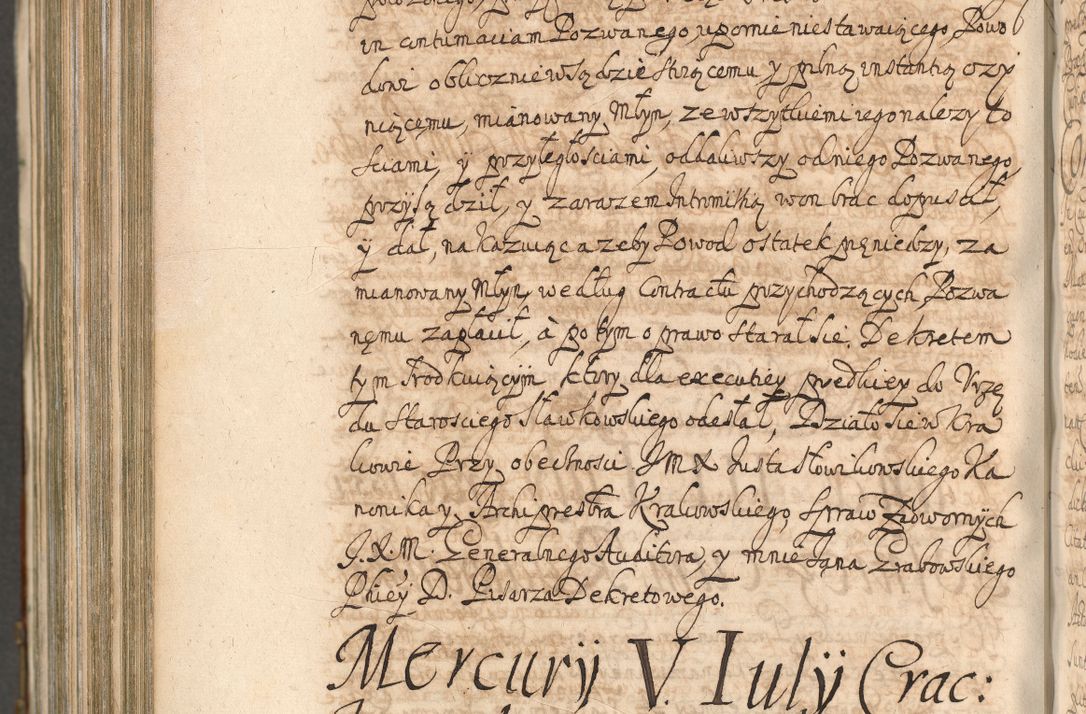 in contumaciam Pozwanego, upornie niestawaiącego, Powo
dowi oblicznie w sądzie stoiącemu y pilną instantią czy
niącemu, mianowany Młyn, ze wszytkiemi iego nalezyto
sciami, y przyległościami, oddaliwszy od niego Pozwanego,
przysądził, y zarazem Intromissią won brac dopuscił,
ÿ dał, nakazuiąc azeby Powod ostatek pęniedzy, za
mianowany Młyn, według Contractu przychodzących, Pozwa
nęmu zapłacił, à potym o prawo starał sie. Dekretem
tym srodkuiącym ktory dla executiey prędkiey do Vrzę
du Starosciego Sławkowskiego odesłał, Działo sie w Kra
kowie Przy obecnosci J M X Justa Słowikowskiego Ka
nonika y Archipresbra Krakowskiego, spraw Zdwornych
J. X. M. Generalnego Auditora, y mnie Jana Grabowskiego
Pkiey D. Pisarza Dekretowego.
Mercurÿ V. Iulÿ Crac: